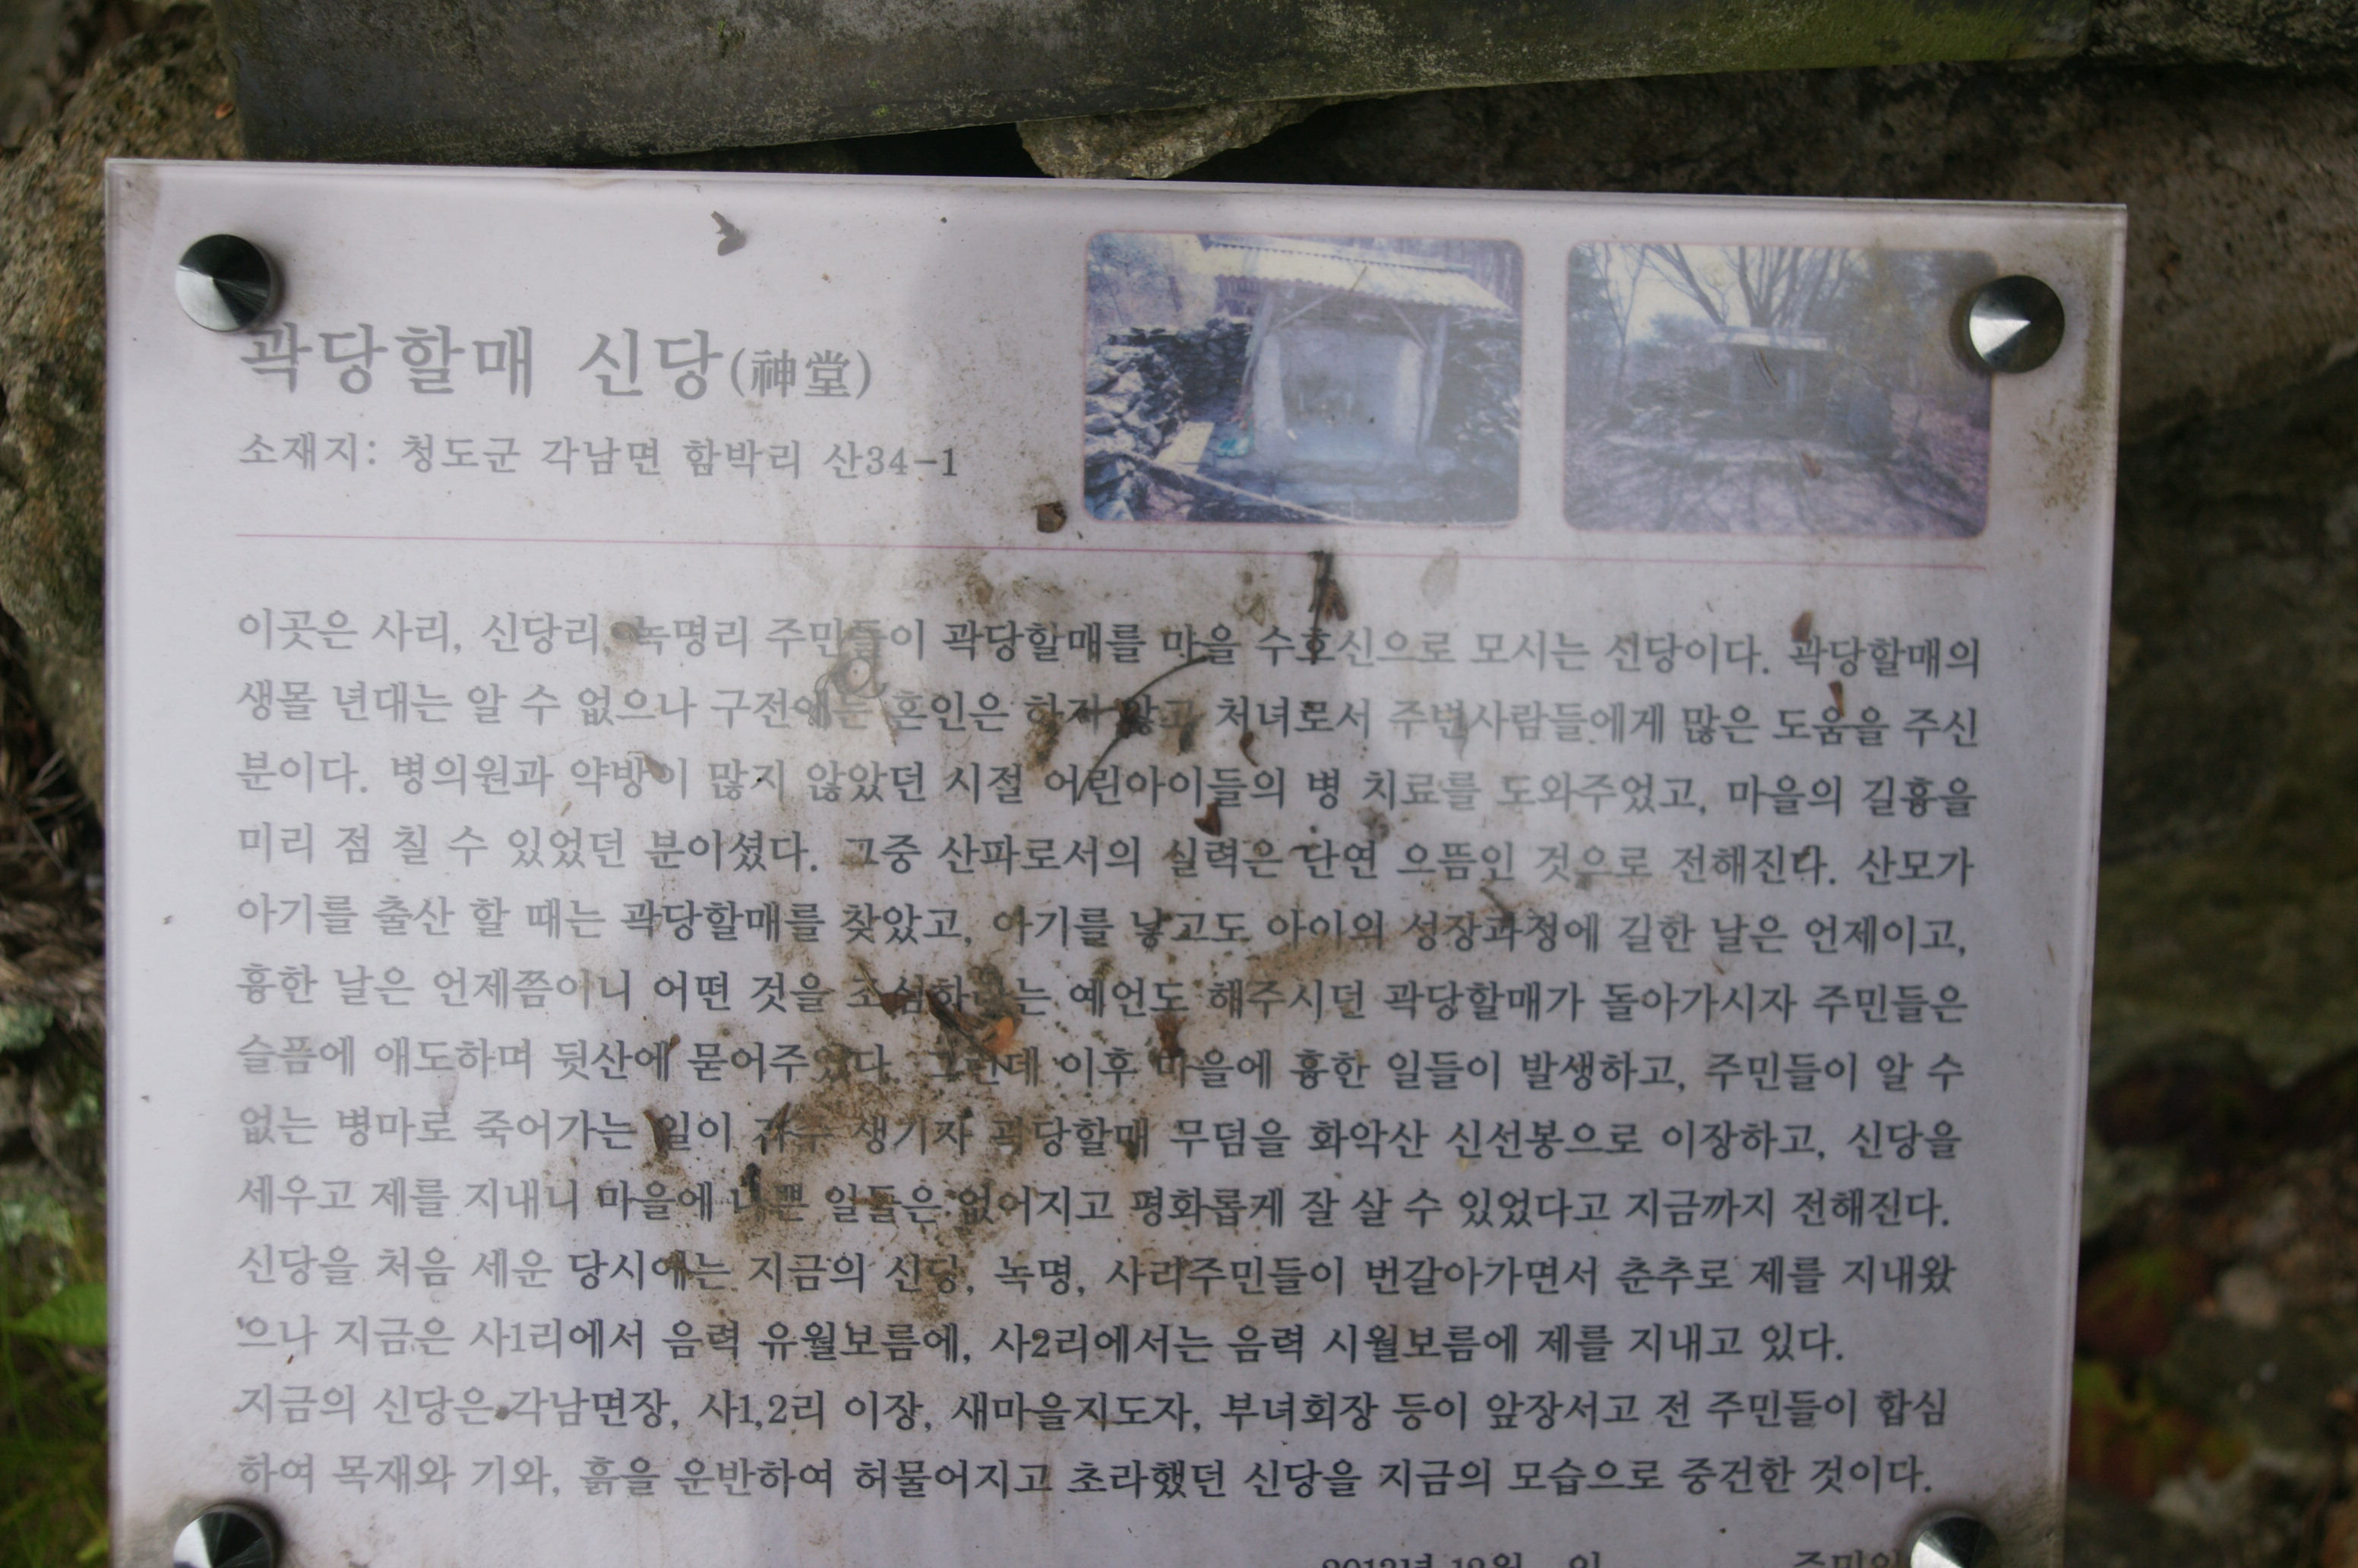 곽당할매 신당(神堂)
소재지: 청도군 각남면 함박리 산34-1
이곳은 사리, 신당리, 녹명리 주민들이 곽당할매를 마을 수호신으로 모시는 선당이다. 곽당할매의
생몰 년대는 알 수 없으나 구전에는 혼인은 하지 않고 처녀로서 주변사람들에게 많은 도움을 주신
분이다. 병의원과 약방이 많지 않았던 시절 어린아이들의 병 치료를 도와주었고, 마을의 길흉을
미리 점 칠 수 있었던 분이셨다. 그중 산파로서의 실력은 단연 으뜸인 것으로 전해진다. 산모가
아기를 출산 할 때는 곽당할매를 찾았고, 아기를 낳고도 아이의 성장과정에 길한 날은 언제이고,
흉한 날은 언제쯤이니 어떤 것을 조심하라는 예언도 해주시던 곽당할매가 돌아가시자 주민들은
슬픔에 애도하며 뒷산에 묻어주었다. 그런데 이후 마을에 흉한 일들이 발생하고, 주민들이 알 수
없는 병마로 죽어가는 일이 자주 생기자 곽당할매 무덤을 화악산 신선봉으로 이장하고, 신당을
세우고 제를 지내니 마을에 나쁜 일들은 없어지고 평화롭게 잘 살 수 있었다고 지금까지 전해진다.
신당을 처음 세운 당시에는 지금의 신당, 녹명, 사리주민들이 번갈아가면서 춘추로 제를 지내왔
으나 지금은 사1리에서 음력 유월보름에, 사2리에서는 음력 시월보름에 제를 지내고 있다.
지금의 신당은 각남면장, 사1,2리 이장, 새마을지도자, 부녀회장 등이 앞장서고 전 주민들이 합심
하여 목재와 기와, 흙을 운반하여 허물어지고 초라했던 신당을 지금의 모습으로 중건한 것이다.